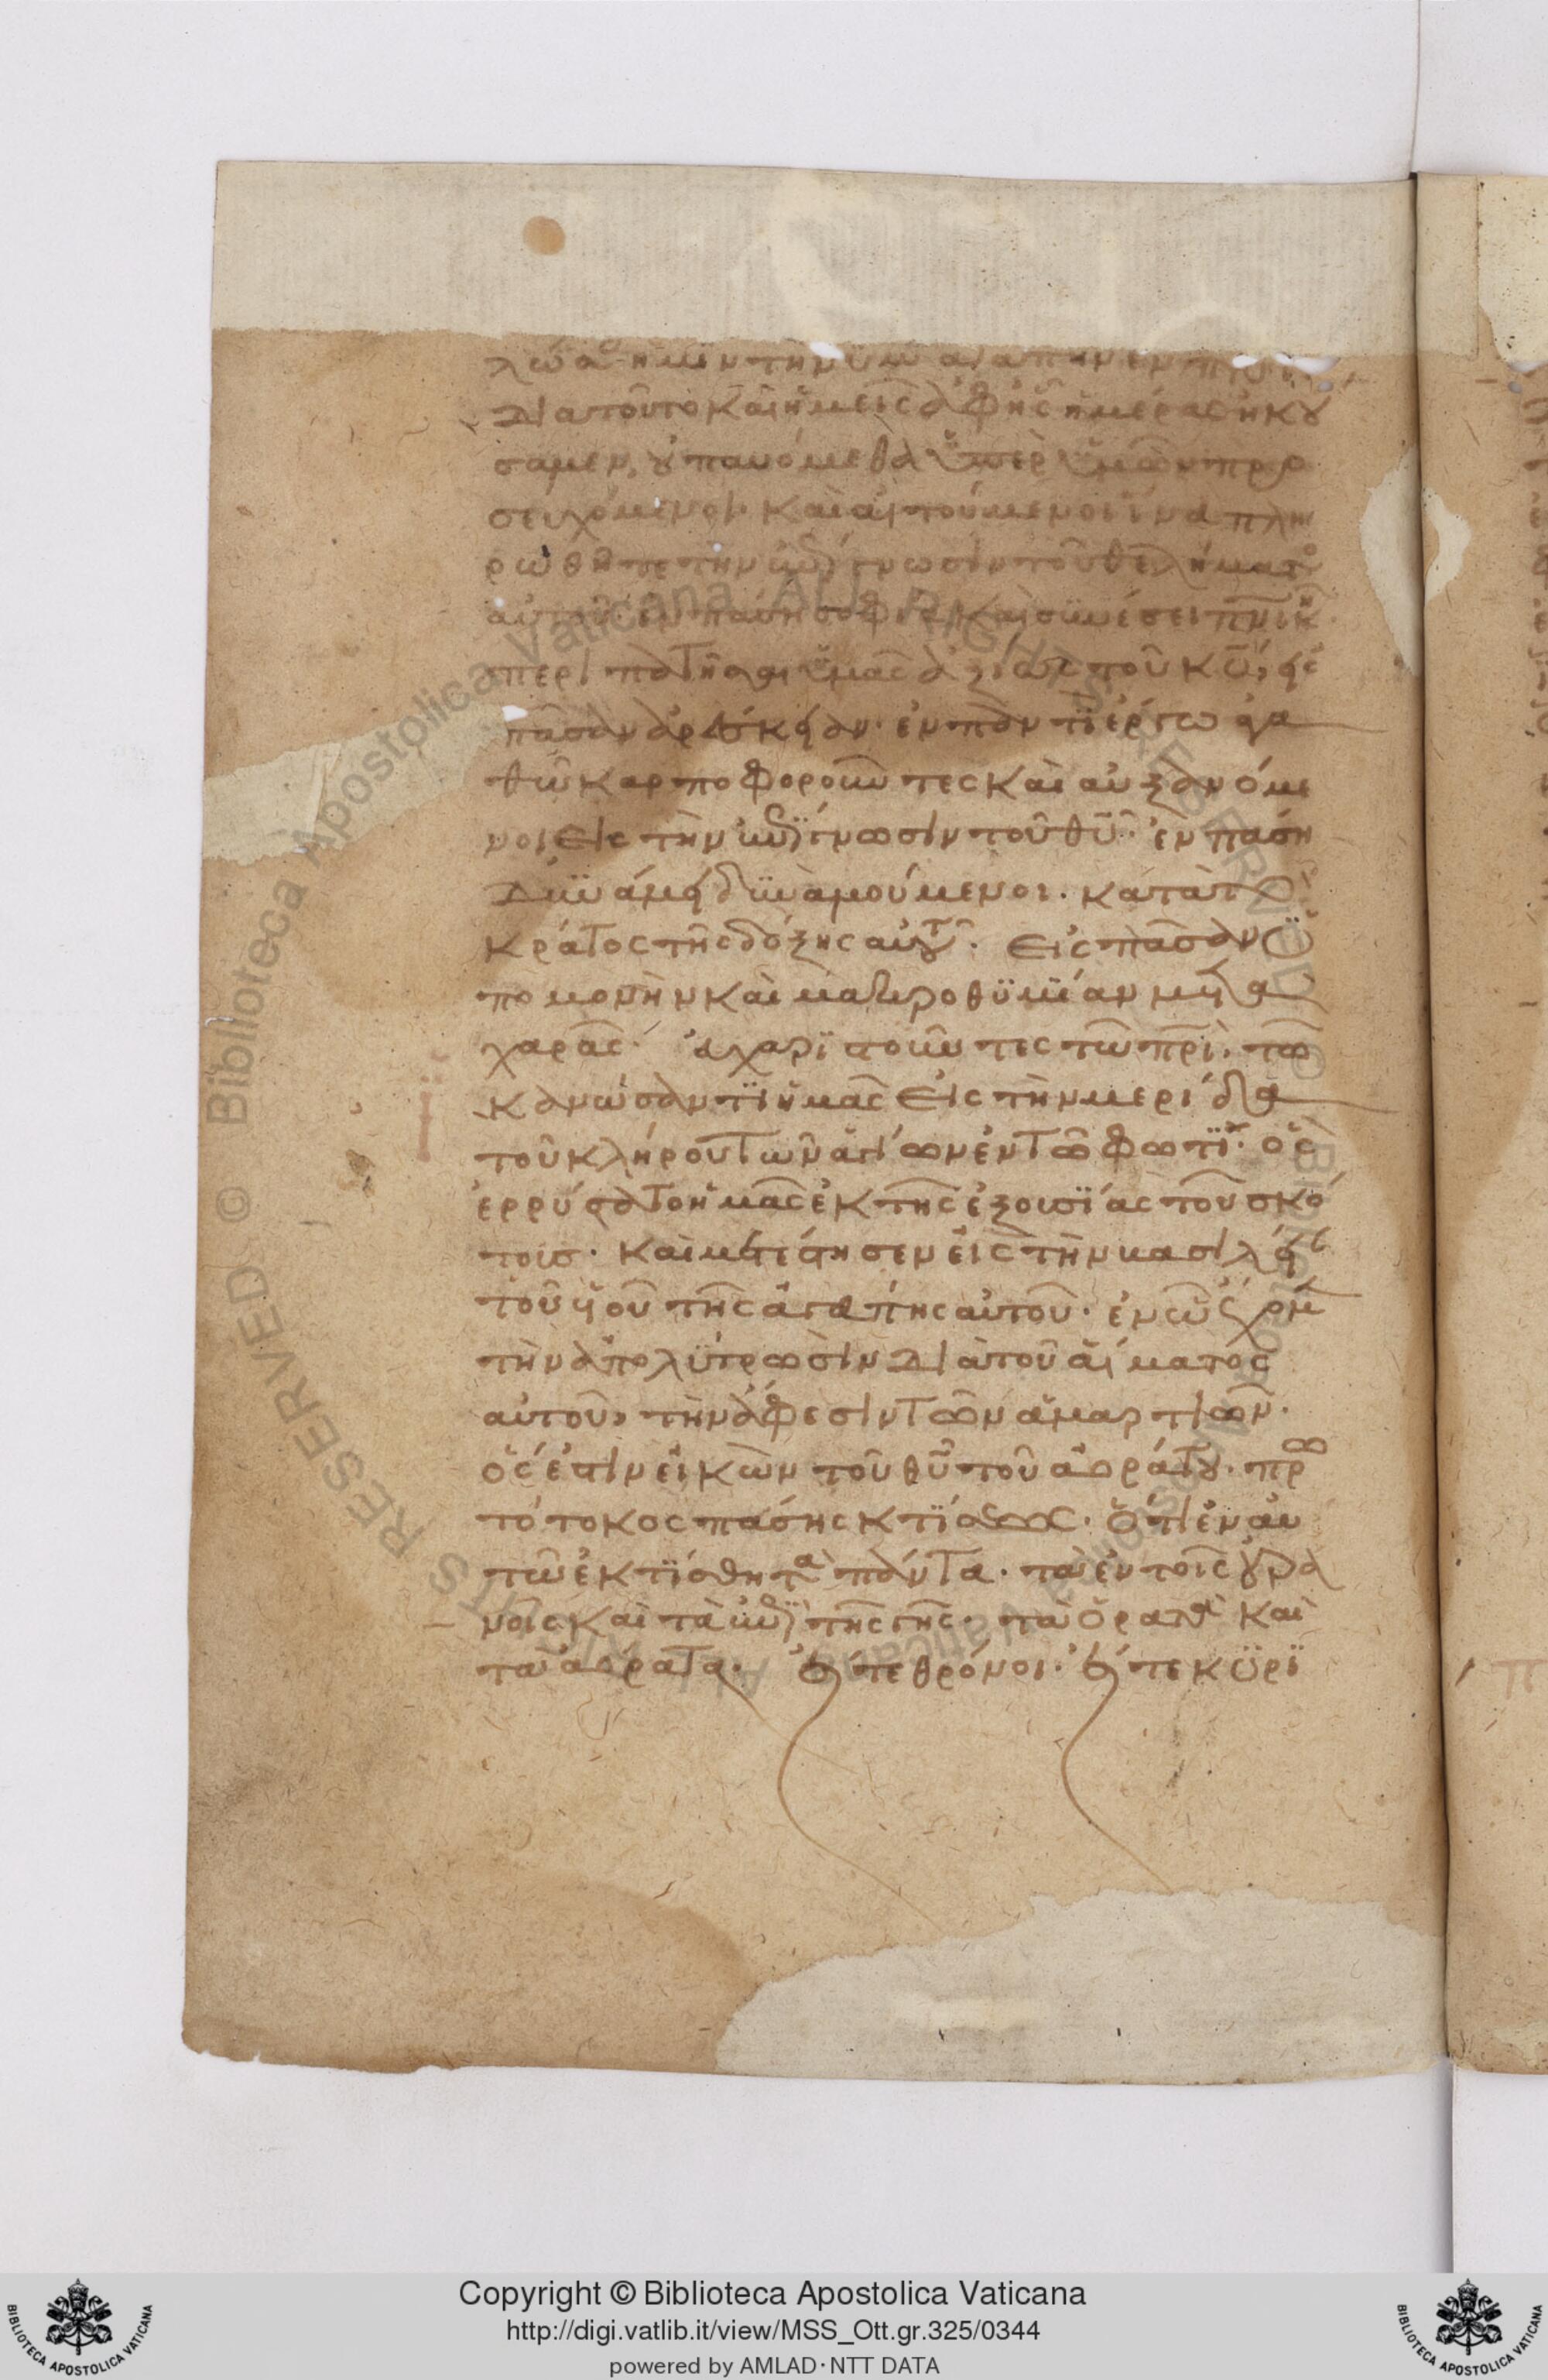 λώσας ἡμῖν τὴν ὑμῶν ἀγάπην ἐν πνι
Διατοῦτο καὶ ἡμεῖς ἀφ ἧς ἡμέρας ἠκού
σαμεν, οὐ παυόμεθα ὑπὲρ ὑμῶν προ
σευχόμενοι· καὶ αἰτούμενοι ἵνα πλη
ρωθῆτε τὴν ἐπίγνωσιν τοῦ θελήματο
αὐτοῦ· ἐν πάσῃ σοφία καὶ συνέσει πνικῆ·
περιπατῆσαι ὑμᾶς ἀξίως τοῦ κυ, εἰς
πᾶσαν ἀρέσκειαν· ἐν παντὶ ἔργω ἀγα
θῶ καρποφοροῦντες καὶ αὐξανόμε
νοι εἰς τὴν ἐπίγνωσιν τοῦ θυ· ἐν πάση
Δυνάμει δυναμούμενοι· κατὰ τὸ
κράτος τῆς δόξης αὐτοῦ· εἰς πᾶσαν ὑ
πομονὴν καὶ μακροθυμίαν μετὰ
χαρᾶς· εὐχαριστοῦντες τῶ πρὶ· τῶ
ἱκανώσαντι ἡμᾶς εἰς τὴν μερίδα
τοῦ κλήρου τῶν ἁγίων ἐν τῶ φωτί· ὃς
ἐρρύσατο ἡμᾶς ἐκ τῆς ἐξουσίας τοῦ σκό
τους· καὶ μετέστησεν εἰς τὴν βασιλεί
τοῦ υἱοῦ τῆς ἀγάπης αὐτοῦ· ἐν ὧ ἔχομ
τὴν ἀπολύτρωσιν Διὰ τοῦ αἵματος
αὐτοῦ, τὴν ἄφεσιν τῶν ἁμαρτιῶν·
ὅς ἐστιν εἰκὼν τοῦ θυ τοῦ ἀοράτου· πρω
τότοκος πάσης κτίσεως· ὅτι ἐν αὐ
τῶ ἐκτίσθη τὰ πάντα· τὰ ἐν τοῖς οὐρα
νοῖς καὶ τὰ ἐπὶ τῆς γῆς· τὰ ὁρατὰ καὶ
τὰ ἀόρατα· εἴτε θρόνοι· εἴτε κυρι
Copyright © Biblioteca Apostolica Vaticana
http://digi.vatlib.it/view/MSS_Ott.gr.325/0344
powered by AMLAD·NTT DATA